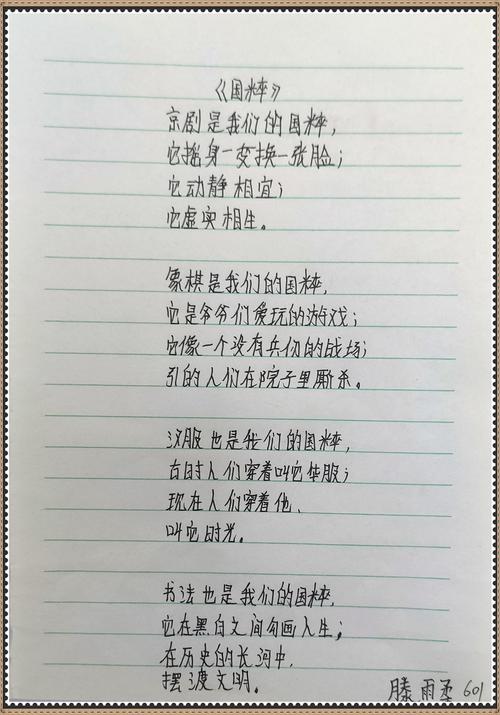 《国粹》
京剧是我们的国粹，
它摇身一变换一张脸；
它动静相宜；
它虚实相生。
象棋是我们的国粹，
它是爷爷们爱玩的游戏；
它像一个没有兵仞的战场；
引的人们在院子里厮杀。
汉服也是我们的国粹，
古时人们穿着叫它华服；
现在人们穿着他、
叫它时光。
书法也是我们的国粹，
它在黑白之间勾画人生；
在历史的长河中，
摆渡文明。
滕雨丞 601